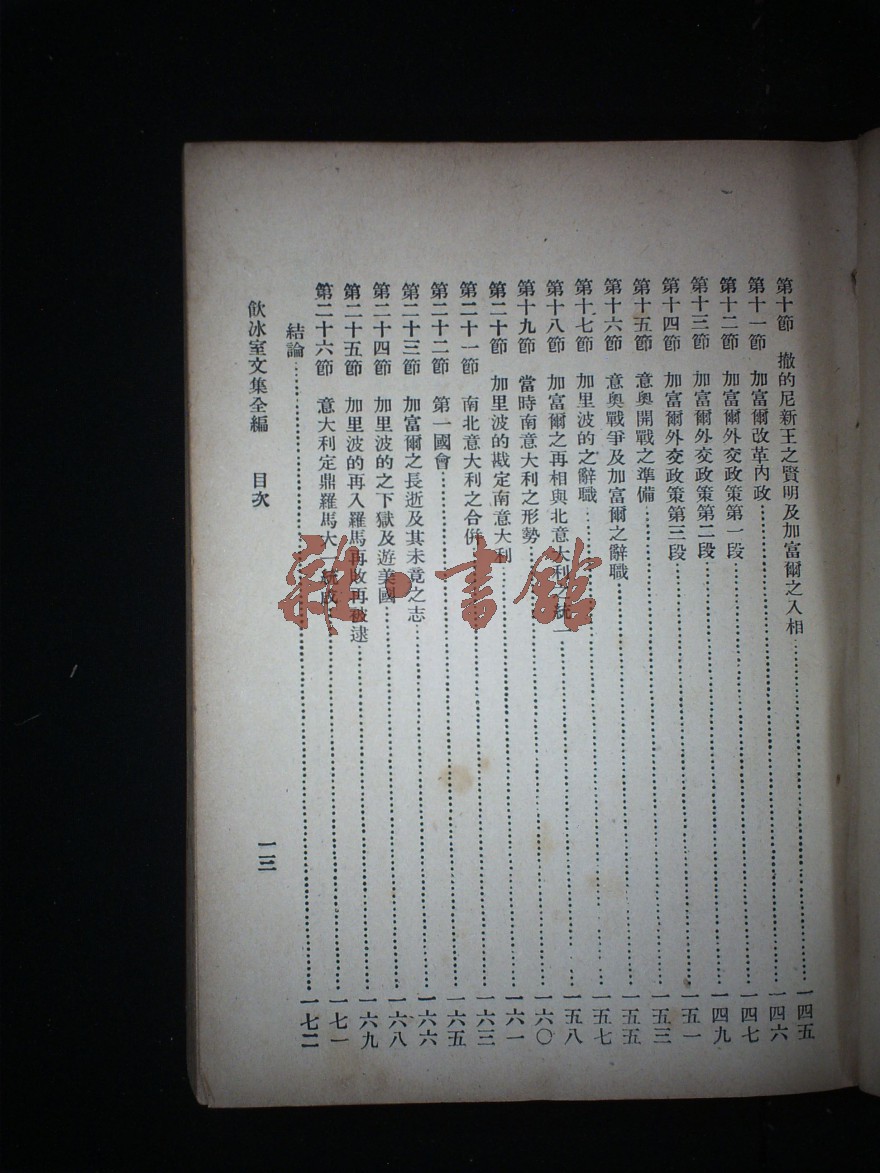 第十節 撤的尼新王之賢明及加富爾之入相……一四五
第十一節 加富爾改革內政……一四六
第十二節 加富爾外交政策第一段……一四七
第十三節 加富爾外交政策第二段……一四九
第十四節 加富爾外交政策第三段……一五一
第十五節 意奧開戰之準備……一五三
第十六節 意奧戰爭及加富爾之辭職……一五五
第十七節 加里波的之辭職……一五七
第十八節 加富爾之再相與北意大利之統一……一五八
第十九節 當時南意大利之形勢……一六〇
第二十節 加里波的戡定南意大利……一六一
第二十一節 南北意大利之合併……一六三
第二十二節 第一國會……一六五
第二十三節 加富爾之長逝及其未竟之志……一六六
第二十四節 加里波的之下獄及遊美國……一六八
第二十五節 加里波的再入羅馬再敗再被逮……一六九
第二十六節 意大利定鼎羅馬大一統成……一七一
結論……一七二
飲冰室文集全編 目次 一三
雜·書館